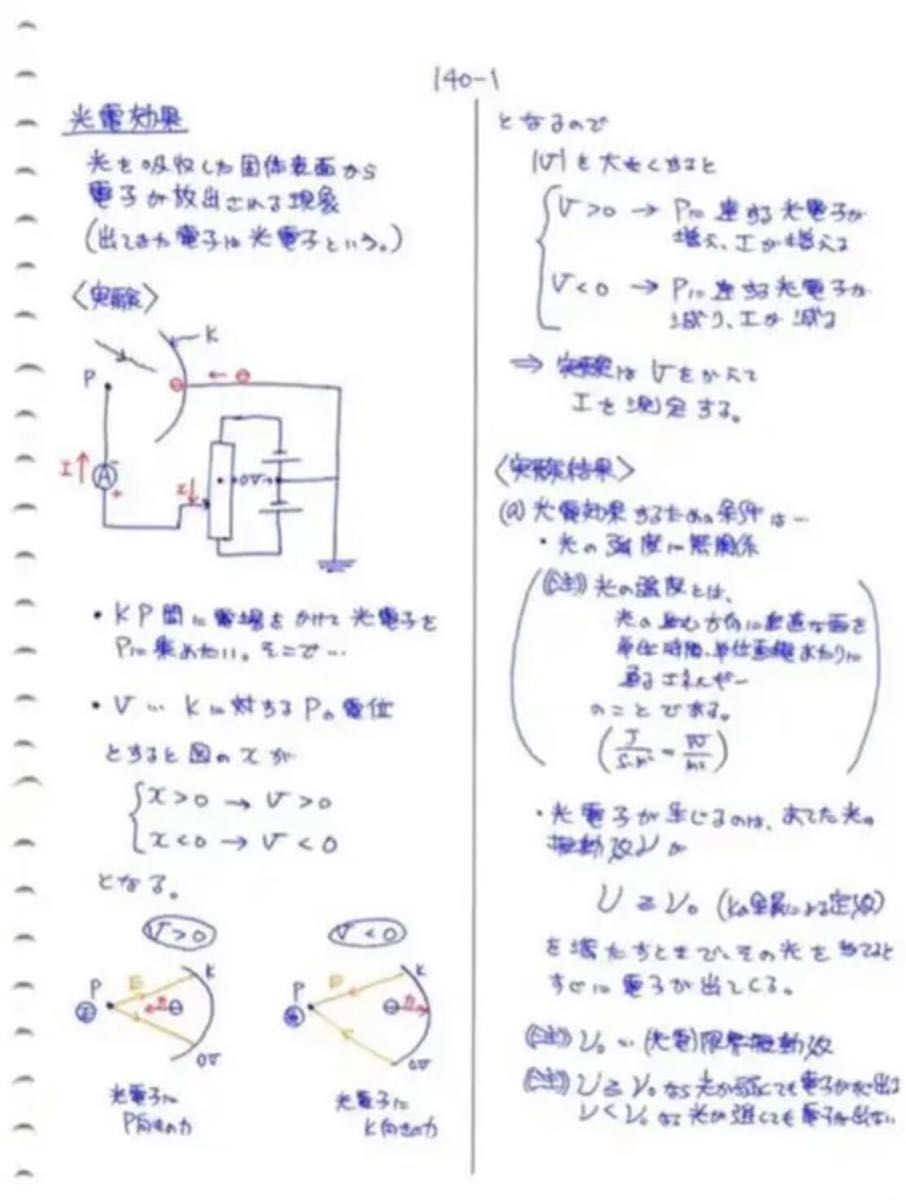 140-1
光電効果
光を吸収した固体表面から
電子が放出される現象
(出てきた電子は光電子という。)
〈実験〉
K
P
⊖
← ⊖
I
A
-
+
x
0V
・KP間に電場をかけて光電子を
Pに集めたい。そこで…
・V … Kに対するPの電位
とすると図のxが
x>0 → V>0
x<0 → V<0
となる。
V>0
P
E
K
⊖
0V
光電子に
P向きの力
V<0
P
E
K
⊖
0V
光電子に
K向きの力
となるので
|V|を大きくすると
V>0 → Pに達する光電子が
増え、Iが増える
V<0 → Pに達する光電子が
減り、Iが減る
⇒ 実験はVをかえて
Iを測定する。
〈実験結果〉
(a) 光電効果するための条件は…
・光の強度に無関係
(注) 光の強度とは、
光の進む方向に垂直な面を
単位時間、単位面積あたりに
通るエネルギー
のことである。
(J/s・m² = W/m²)
・光電子が生じるのは、あてた光の
振動数νが
ν ≧ ν₀ (Kの金属による定数)
を満たすときで、その光を当てると
すぐに電子が出てくる。
(注) ν₀ … (光電)限界振動数
(注) ν≧ν₀なら光が弱くても電子がすぐ出る
ν<ν₀なら光が強くても電子が出ない